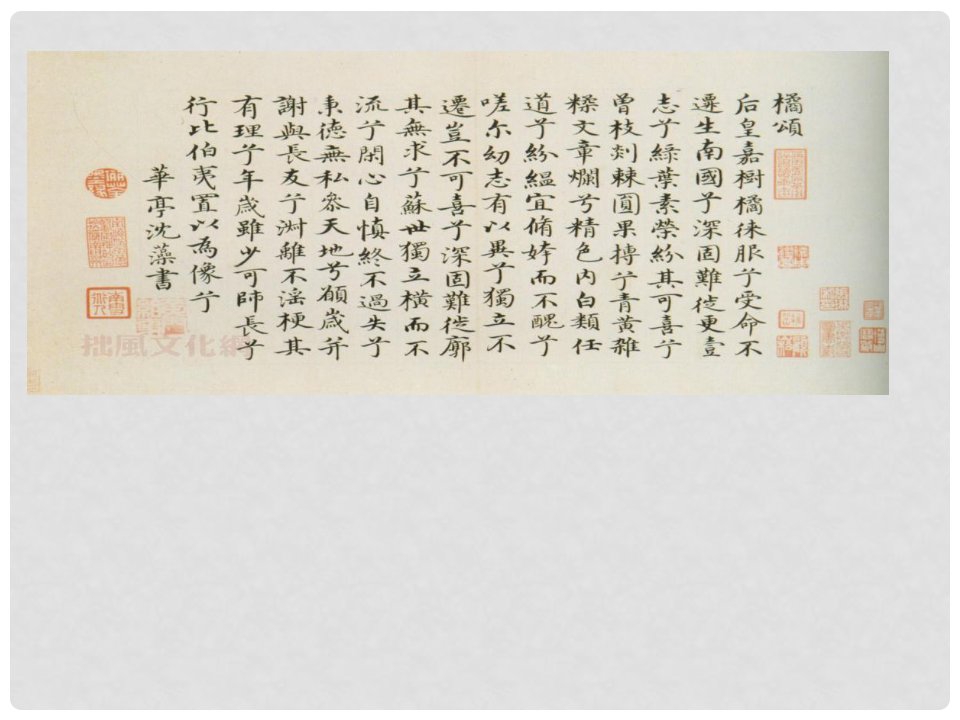 橘頌
后皇嘉樹橘徠服兮受命不
遷生南國兮深固難徙更壹
志兮綠葉素榮紛其可喜兮
曾枝剡棘圓果摶兮青黃雜
糅文章爛兮精色內白類任
道兮紛縕宜脩姱而不醜兮
嗟尔幼志有以異兮獨立不
遷豈不可喜兮深固難徙廓
其無求兮蘇世獨立橫而不
流兮閉心自慎終不過失兮
秉德無私參天地兮願歲并
謝與長友兮淑離不淫梗其
有理兮年歲雖少可師長兮
行比伯夷置以為像兮
華亭沈藻書
拙風文化網